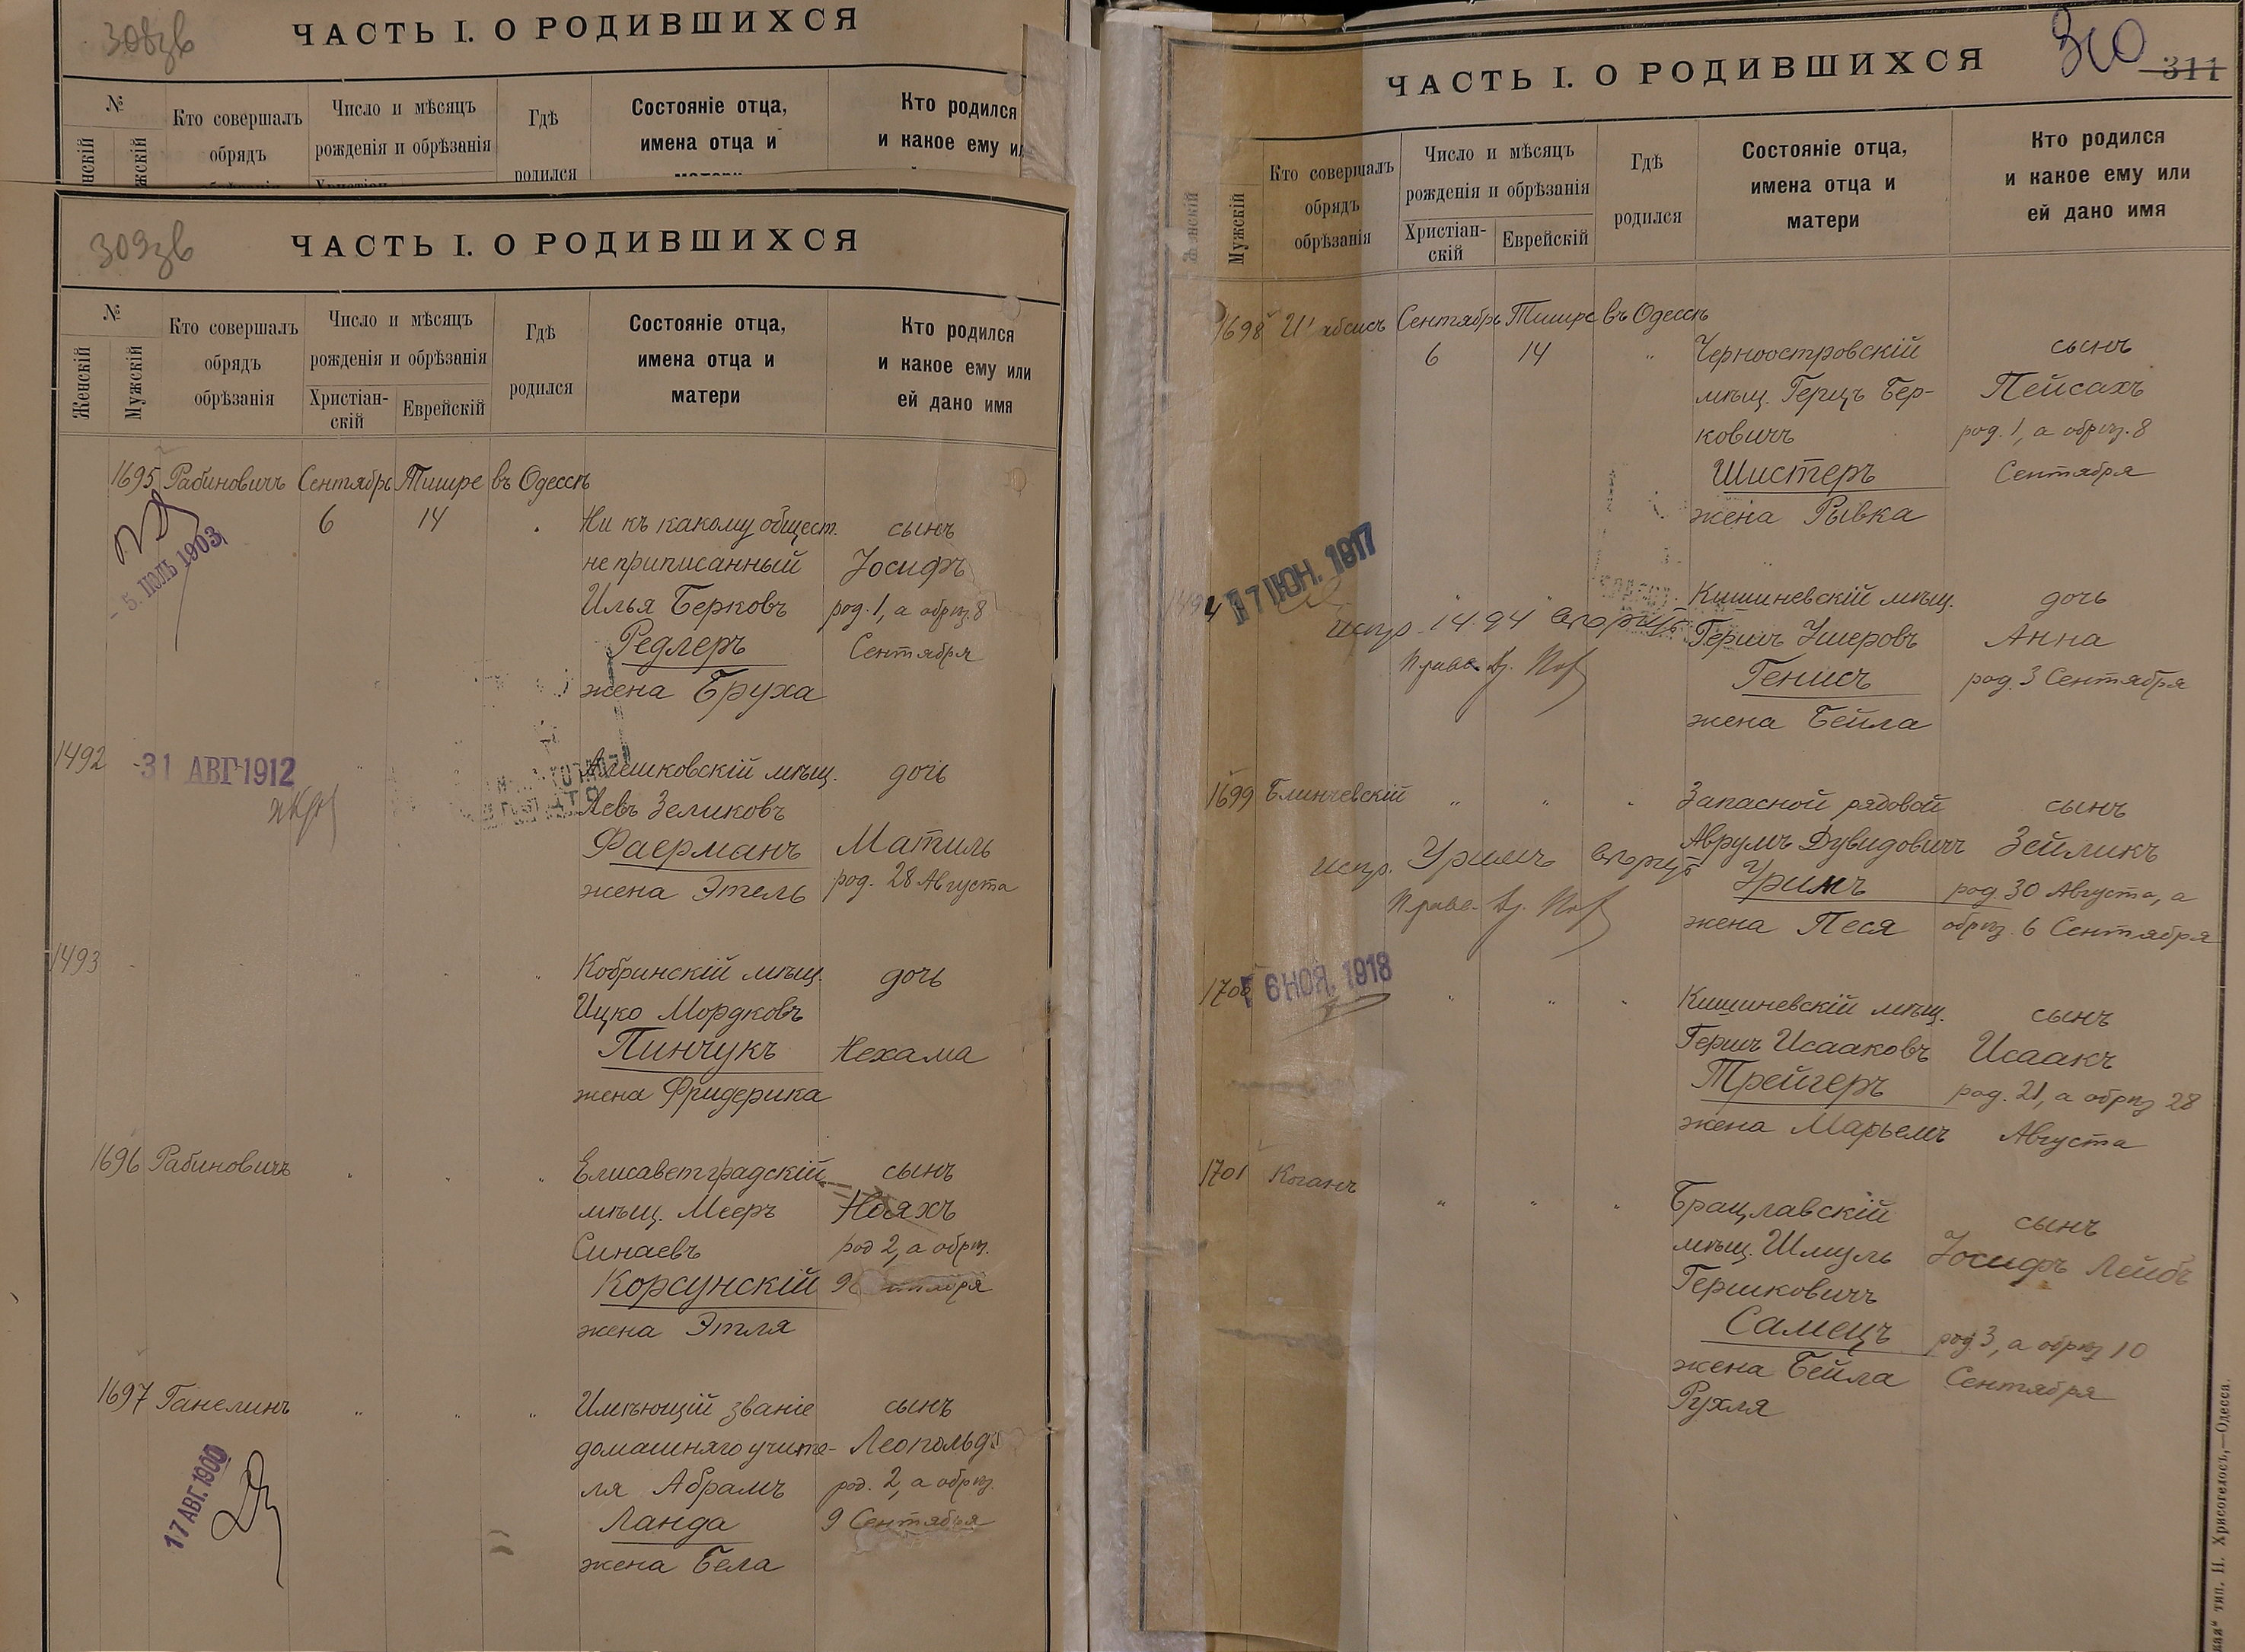 308зв
ЧАСТЬ I. О РОДИВШИХСЯ
№
Кто совершалъ
обрядъ
Число и мѣсяцъ
рожденія и обрѣзанія
Гдѣ
родился
Состояніе отца,
имена отца и
Кто родился
и какое ему
309зв
ЧАСТЬ I. О РОДИВШИХСЯ
№
Женскій
Мужскій
Кто совершалъ
обрядъ
обрѣзанія
Число и мѣсяцъ
рожденія и обрѣзанія
Христіан-
скій
Еврейскій
Гдѣ
родился
Состояніе отца,
имена отца и
матери
Кто родился
и какое ему или
ей дано имя
1695 Рабиновичъ Сентябрь Тишре въ Одессѣ
6 14 Ни къ какому общест. сынъ
не приписанный Іосифъ
Илья Берковъ род. 1, а обрѣз. 8
Редлеръ Сентября
жена Бруха
- 5. ІЮЛЬ 1903
1492 31 АВГ 1912 Алешковскій мѣщ. дочь
Левъ Зеликовъ
Фаерманъ Матиль
жена Этель род. 28 Августа
1493 Кобринскій мѣщ. дочь
Ицко Мордковъ
Пинчукъ Нехама
жена Фридерика
1696 Рабиновичъ Елисаветградскій сынъ
мѣщ. Мееръ Нояхъ
Синаевъ род 2, а обрѣз.
Корсунскій 9
жена Этля
1697 Ганелинъ " " " Имѣющій званіе сынъ
домашняго учите- Леопольдъ
ля Абрамъ род. 2, а обрѣз.
Ланда 9 Сентября
жена Бела
17 АВГ. 1900
310 311
ЧАСТЬ I. О РОДИВШИХСЯ
Мужскій
Кто совершалъ
обрядъ
обрѣзанія
Число и мѣсяцъ
рожденія и обрѣзанія
Христіан-
скій
Еврейскій
Гдѣ
родился
Состояніе отца,
имена отца и
матери
Кто родился
и какое ему или
ей дано имя
1698 Сентябрь Тишре въ Одессѣ
6 14 " Черноостровскій сынъ
мѣщ. Герцъ Бер- Пейсахъ
ковичъ род. 1, а обрѣз. 8
Шистеръ Сентября
жена Рывка
1494 17 ІЮН. 1917 Кишиневскій мѣщ. дочь
испр. "1494" Гершъ Ушеровъ Анна
Генисъ род. 3 Сентября
жена Бейла
1699 Блинчевскій " " " Запасной рядовой сынъ
Аврумъ Дувидовичъ Зейликъ
испр. Уримъ Уримъ род. 30 Августа, а
жена Песя обрѣз. 6 Сентября
1700 6 НОЯ. 1918 " " " Кишиневскій мѣщ. сынъ
Гершъ Исааковъ Исаакъ
Трейгеръ род. 21, а обрѣз 28
жена Марьемъ Августа
1701 Коганъ " " " Брацлавскій сынъ
мѣщ. Шмуль Іосифъ Лейбъ
Гершковичъ
Самецъ род 3, а обрѣз 10
жена Бейла Сентября
Рухля
тип. П. Хрисогелосъ,—Одесса.